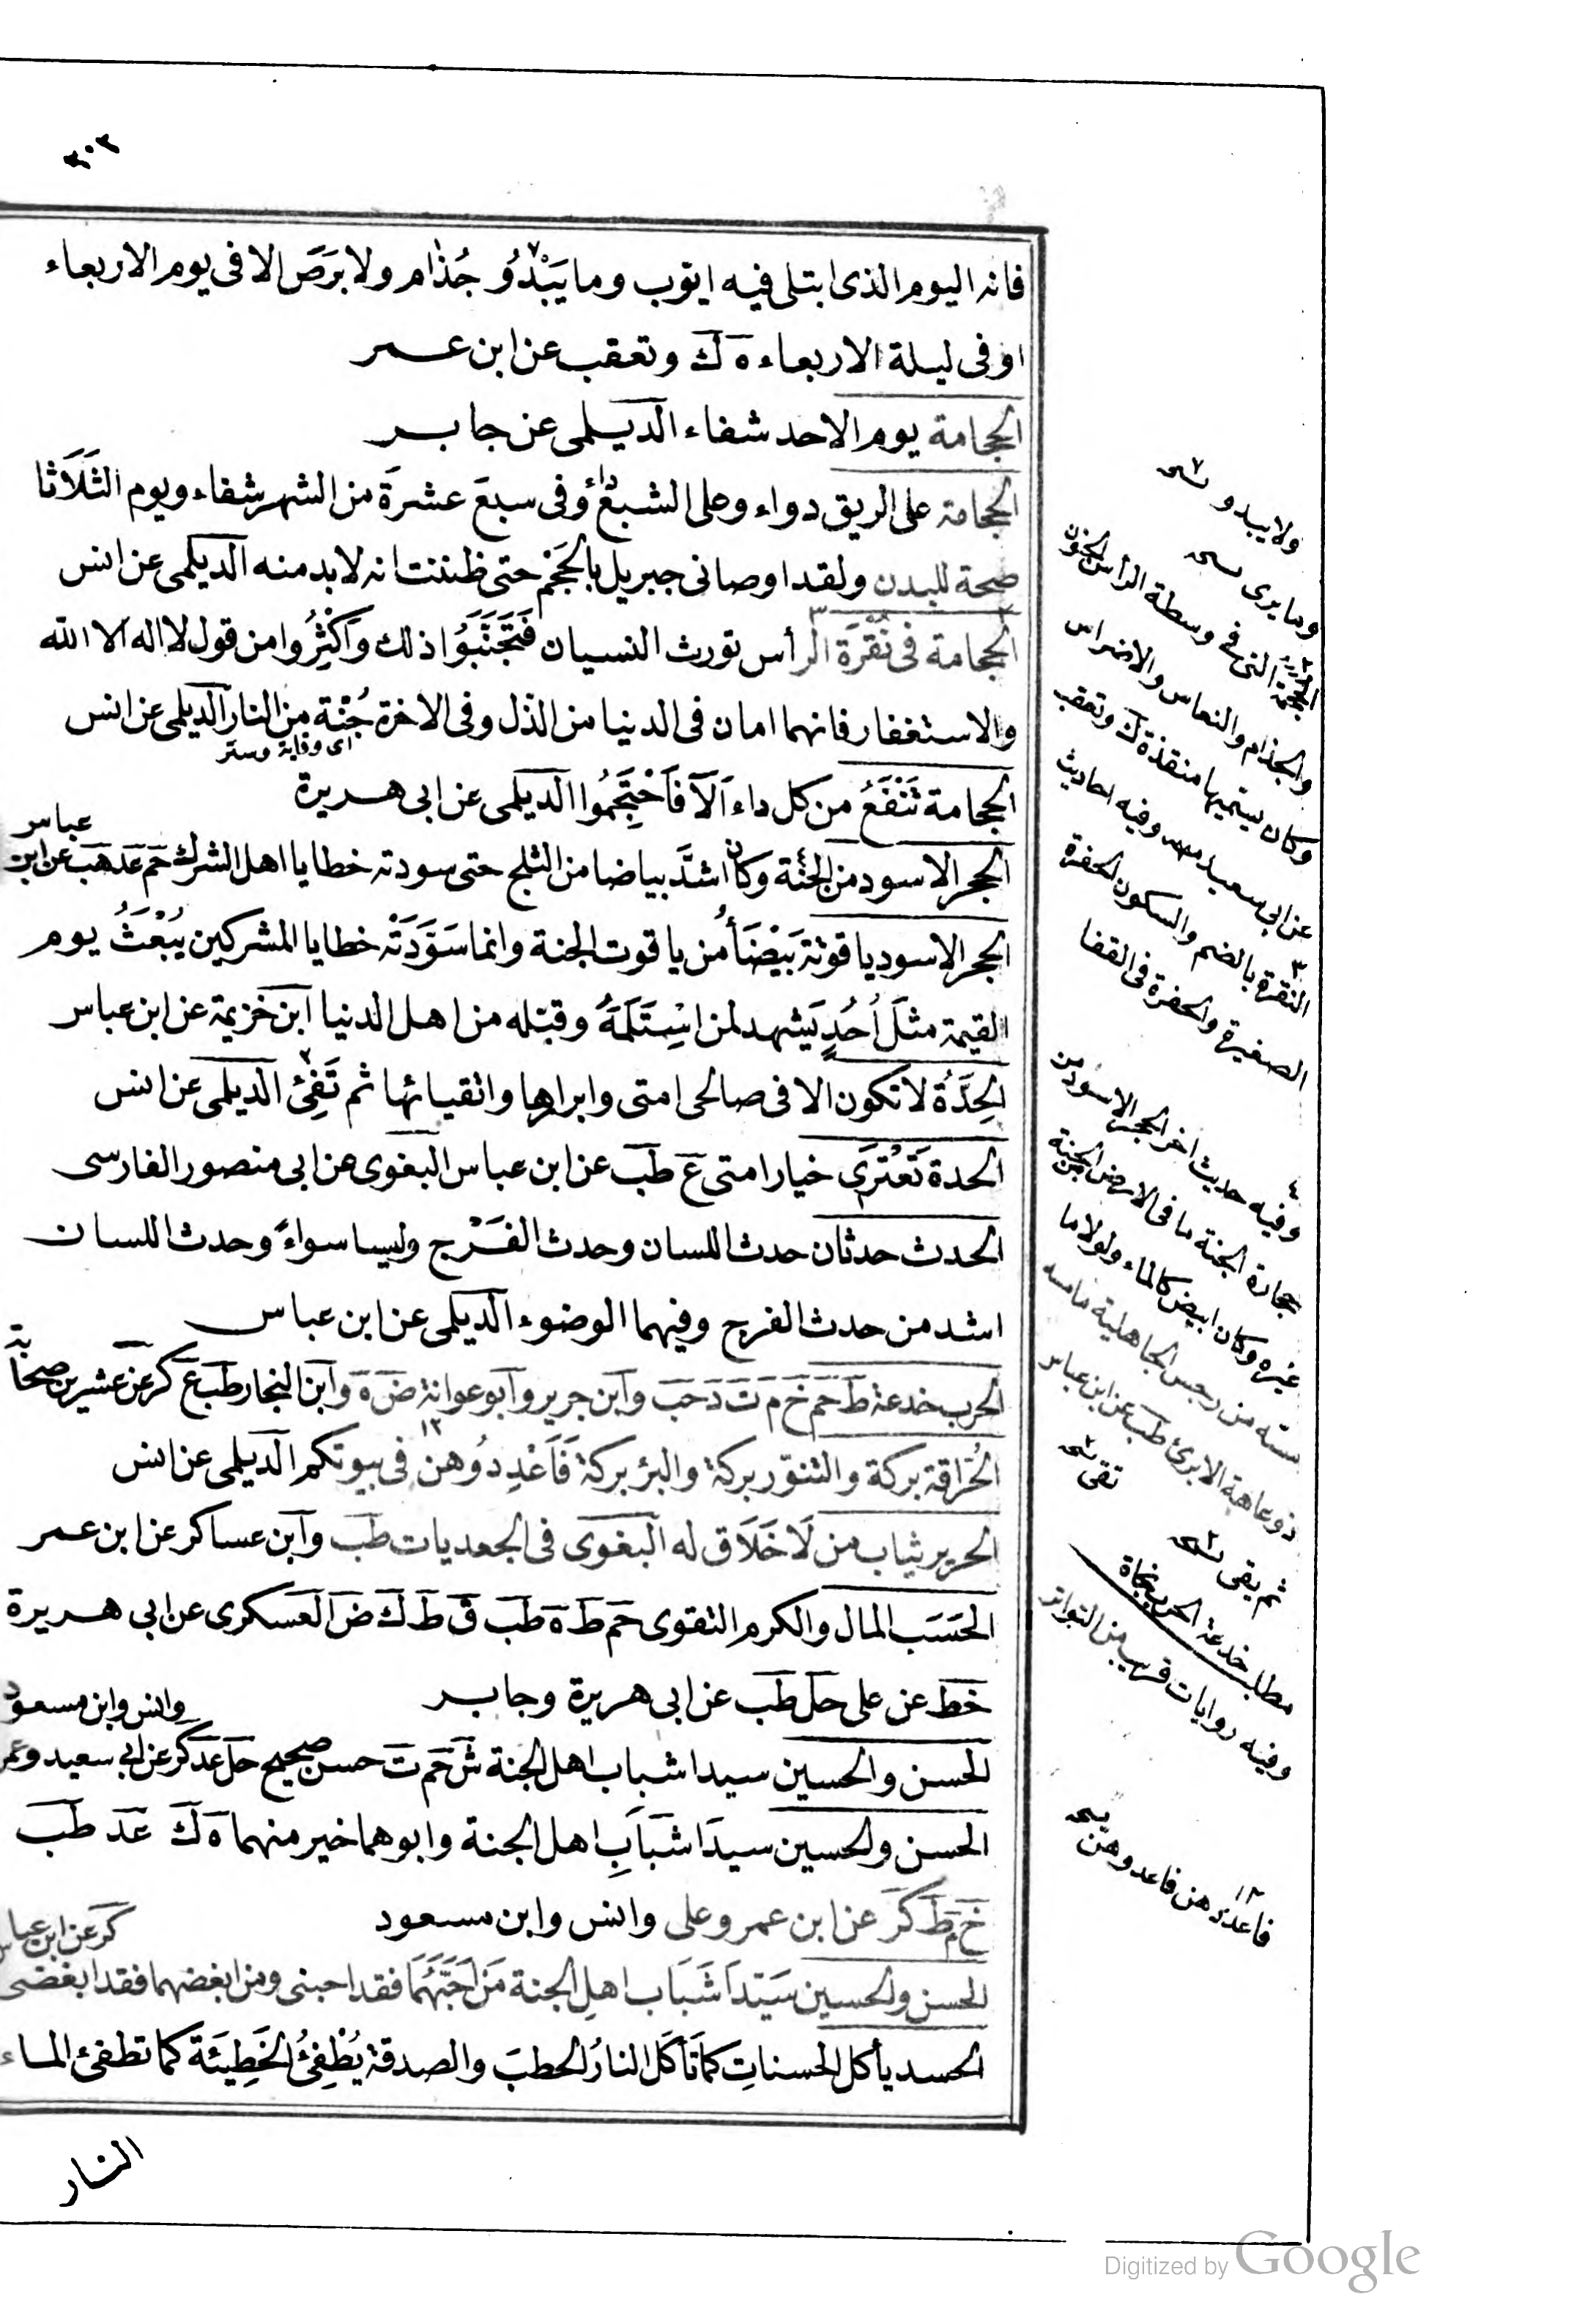 ٣٠٣
فانه اليوم الذى ابتلى فيه ايوب وما يَبْدُو جُذام ولا بَرَصَ الا فى يوم الاربعاء
او فى ليلة الاربعاء ه ك وتعقب عن ابن عمر
الحجامة يوم الاحد شفاء الديلمى عن جابر
الحجامة على الريق دواء وعلى الشبع داء وفى سبعَ عشرةَ من الشهر شفاء ويوم الثَلَاثا
صحة للبدن ولقد اوصانى جبريل بالحَجْم حتى ظننت انه لا بد منه الديلمى عن انس
الحجامة فى نُقْرَة الرأس تورث النسيان فَتَجَنَّبَوُا ذلك وَاكْثِرُوا من قول لا اله الا الله
والاستغفار فانهما امان فى الدنيا من الذل وفى الاخرة جُنَّة من النار الديلمى عن انس
اى وقاية وستر
الحجامة تَنْفَعُ من كل داء اَلَا فَاحْتَجِمُوا الديلمى عن ابى هريرة
الحجر الاسود من الجنة وكان اشدَّ بياضا من الثلج حتى سودته خطايا اهل الشرك حم عد هب عن ابن عباس
الحجر الاسود ياقوتة بَيْضَاُ من ياقوت الجنة وانما سَوَّدَتْه خطايا المشركين يُبْعَثُ يوم
القيمة مثلَ اُحُدٍ يَشهد لمن اسْتَلَمَهُ وقبّله من اهل الدنيا ابن خزيمة عن ابن عباس
الحِدَّةُ لا تكون الا فى صالحى امتى وابرارها واتقيائها ثم تَفِئ الديلمى عن انس
الحدة تَعْتَرِى خيار امتى ع طب عن ابن عباس البغوى عن ابى منصور الفارسى
الحدث حدثان حدث اللسان وحدث الفَرْج وليسا سواءً وحدث اللسان
اشد من حدث الفرج وفيهما الوضوء الديلمى عن ابن عباس
الحرب خدعة ط حم خ م ت د حب وابن جرير وابو عوانة ض ه وابن النجار طب ع كر عن عشرين صحابة
الحُرَاقة بركة والتنوّر بركة والبئر بركة فَاَعْدِدُوهن فى بيوتكم الديلمى عن انس
الحرير ثياب من لَا خَلَاق له البغوى فى الجعديات طب وابن عساكر عن ابن عمر
الحَسَب المال والكرم التقوى حم ط ه طب ق ط ك ض العسكرى عن ابى هريرة
خط عن على حل طب عن ابى هريرة وجابر
وانس وابن مسعود
الحسن والحسين سيدا شباب اهل الجنة ش حم ت حسن صحيح حل عد كر عن ابى سعيد وعمر
الحسن والحسين سيدَا شَبَابِ اهل الجنة وابوهما خير منهما ه ك عد طب
خ م ط كر عن ابن عمر وعلى وانس وابن مسعود
كر عن ابن عباس
الحسن والحسين سَيّدَا شَبَاب اهلِ الجنة مَن اَحَبَّهُمَا فقد احبنى ومن ابغضهما فقد ابغضنى
الحسد يأكل الحسناتِ كما تَأكُل النارُ الحطبَ والصدقة يُطْفِئُ الخَطِيئَة كما تطفئ الماء
النار
ولا يبدو
وما يرى
الحجمة التى فى وسطة الرأس من الجنون
والجذام والنعاس والاضراس
وكان يسميها منقذة ك وتعقب
عن ابى سعيد وفيه احاديث
٣
النقرة بالضم والسكون الحفرة
الصغيرة والحفرة فى القفا
٤
وفيه حديث اخر الحجر الاسود من
حجارة الجنة ما فى الارض من الجنة
غيره وكان ابيض كالماء ولولا ما
مسه من رجس الجاهلية ما مسه
ذو عاهة الا برئ طب عن ابن عباس
تقى
ثم يفى
مطلب خدعة الحرب
وفيه روايات قريب من التواتر
١٢
فاعدوهن
Digitized by Google